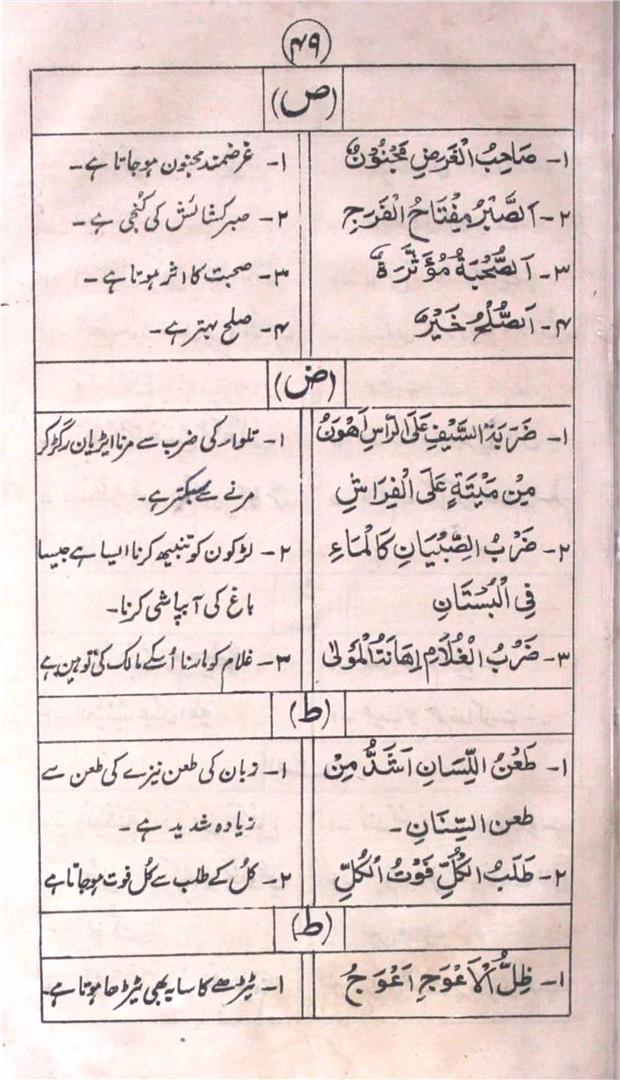 ۴۹
(ص)
۱- صَاحِبُ الْغَرَضِ مَجْنُوْنٌ ۱- غرضمند مجنون ہوجاتا ہے۔
۲- اَلصَّبْرُ مِفْتَاحُ الْفَرَجِ ۲- صبر کشائش کی کُنجی ہے۔
۳- اَلصُّحْبَةُ مُؤَثِّرَةٌ ۳- صحبت کا اثر ہوتا ہے۔
۴- اَلصُّلْحُ خَيْرٌ ۴- صلح بہتر ہے۔
(ض)
۱- ضَرَبَةُ السَّيْفِ عَلَى الرَّاسِ اَهْوَنُ ۱- تلوار کی ضرب سے مرنا ایڑیان رگڑ کر
مِنْ مَيْتَةٍ عَلَى الْفِرَاشِ مرنے سے بہتر ہے۔
۲- ضَرْبُ الصِّبْيَانِ كَالْمَاءِ ۲- لڑکون کو تنبیھ کرنا ایسا ہے جیسا
فِى الْبُسْتَانِ باغ کی آبپاشی کرنا۔
۳- ضَرْبُ الْغُلَامِ اِهَانَتُ الْمَوْلٰى ۳- غلام کو مارنا اُسکے مالک کی توہین ہے
(ط)
۱- طَعْنُ اللِّسَانِ اَشَدُّ مِنْ ۱- زبان کی طعن نیزے کی طعن سے
طعن السِّنَانِ۔ زیادہ شدید ہے۔
۲- طَلَبُ الكُلِّ فَوْتُ الكُلِّ ۲- کلُ کے طلب سے کُل فوت ہوجاتا ہے
(ط)
۱- ظِلُّ الْاَعْوَجِ اَعْوَجُ ۱- ٹیڑھے کا سایہ بھی ٹیڑھا ہوتا ہے۔